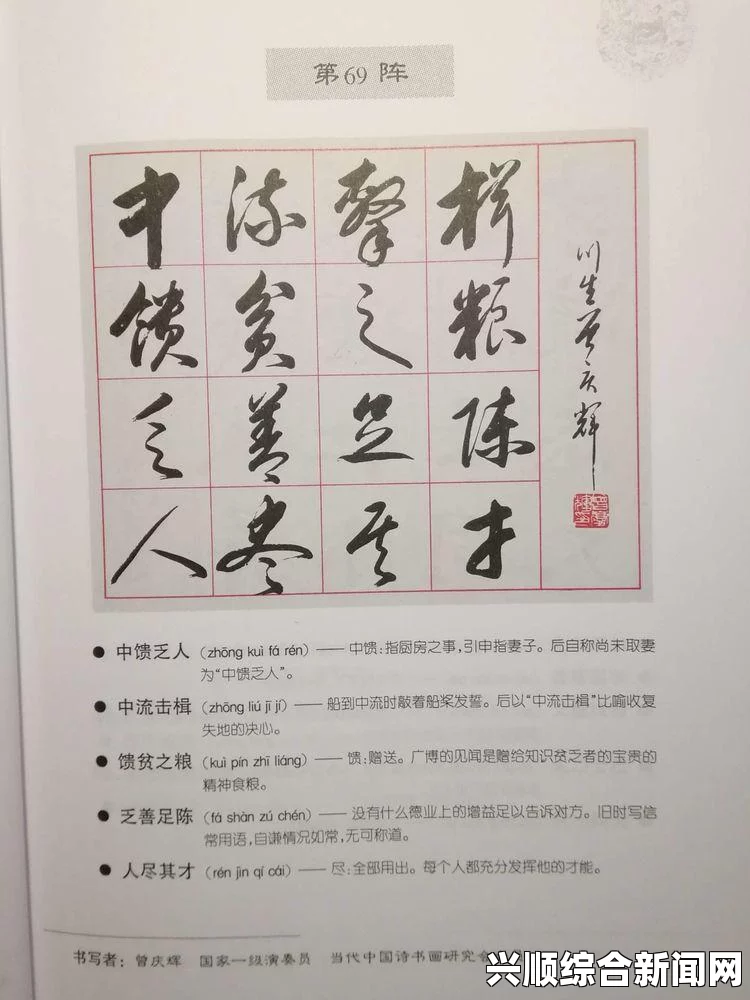 第69阵
中流擊楫
馈贫之粮
乏善足陈
人尽其才
川生曾庆辉
● 中馈乏人（zhōng kuì fá rén）—— 中馈：指厨房之事，引申指妻子。后自称尚未取妻
为“中馈乏人”。
● 中流击楫（zhōng liú jī jí）—— 船到中流时敲着船桨发誓。后以“中流击楫”比喻收复
失地的决心。
● 馈贫之粮（kuì pín zhī liáng）—— 馈：赠送。广博的见闻是赠给知识贫乏者的宝贵的
精神食粮。
● 乏善足陈（fá shàn zú chén）—— 没有什么德业上的增益足以告诉对方。旧时写信
常用语，自谦情况如常，无可称道。
● 人尽其才（rén jìn qí cái）—— 尽：全部用出。每个人都充分发挥他的才能。
书写者：曾庆辉 国家一级演奏员 当代中国诗书画研究会
兴顺综合新闻网